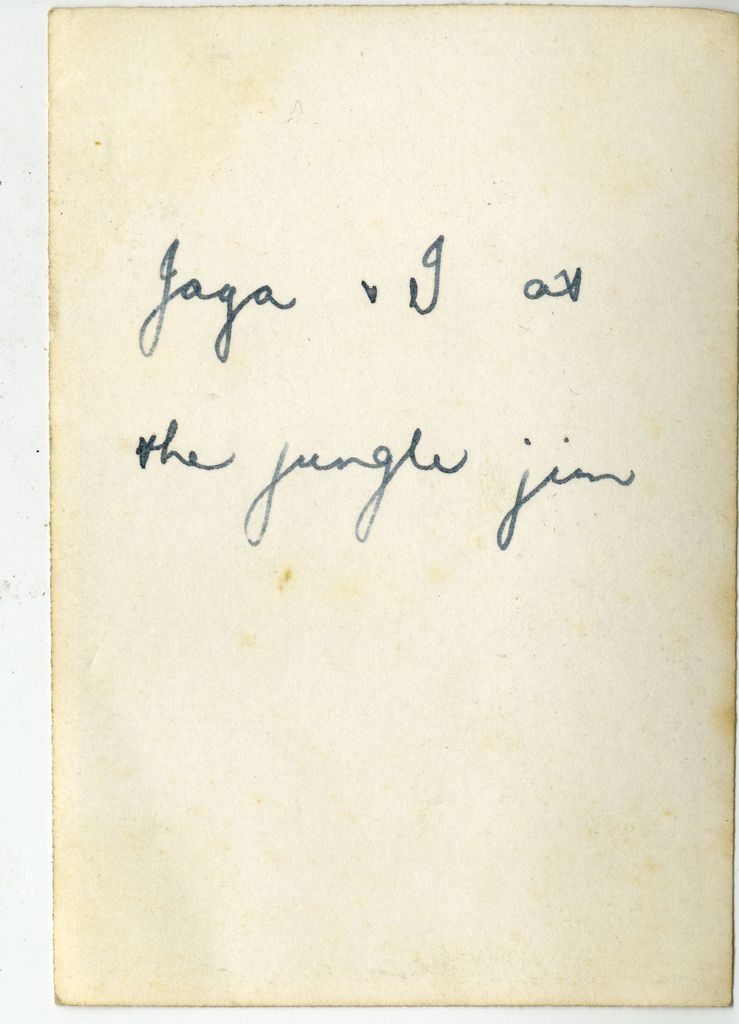 Jaga & I at
the jungle jim